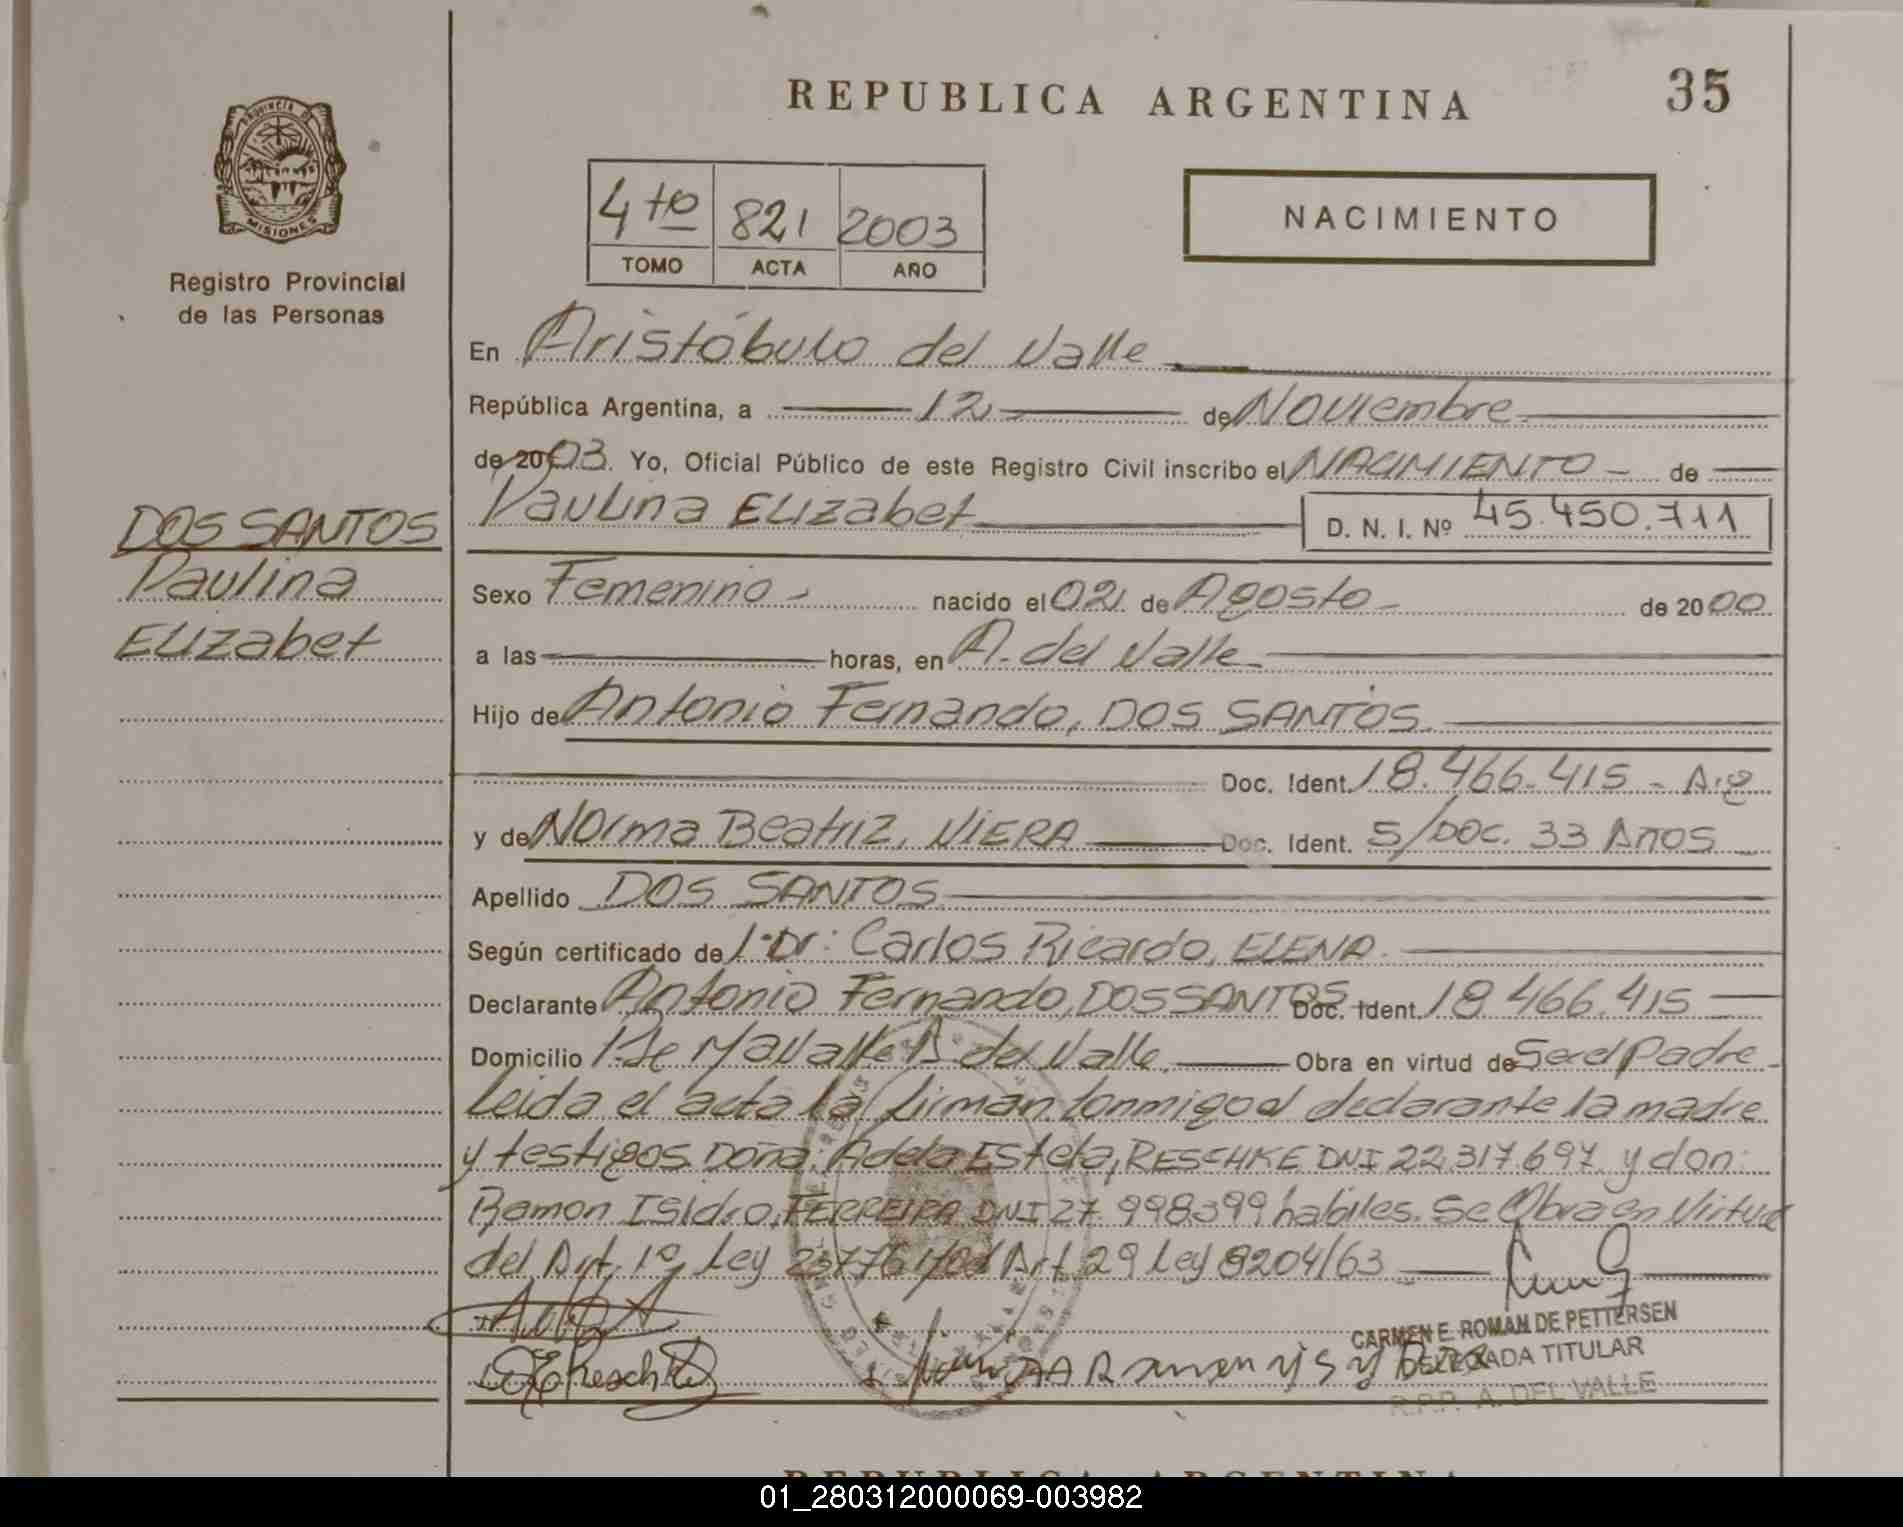 REPUBLICA ARGENTINA
35
PROVINCIA DE
MISIONES
Registro Provincial
de las Personas
4to 821 2003
TOMO ACTA AÑO
NACIMIENTO
En Aristóbulo del Valle
República Argentina, a 12 de Noviembre
de 2003. Yo, Oficial Público de este Registro Civil inscribo el NACIMIENTO de
Paulina Elizabet D. N. I. Nº 45.450.711
DOS SANTOS
Paulina
Elizabet
Sexo Femenino nacido el 02 de Agosto de 2000
a las horas, en A. del Valle
Hijo de Antonio Fernando, DOS SANTOS
Doc. Ident. 18.466.415 - Arg
y de Norma Beatriz, VIERA Doc. Ident. S/DOC. 33 Años
Apellido DOS SANTOS
Según certificado de l. Dr: Carlos Ricardo, ELENA.
Declarante Antonio Fernando, DOS SANTOS Doc. Ident. 18.466.415
Domicilio A. del Valle Obra en virtud de Ser el Padre
Leida el acta la firman conmigo el declarante la madre
y testigos Doña: Adela Estela, RESCHKE DNI 22.317.697 y don:
Ramon Isidro, FERREIRA DNI 27.998.399 habiles. Se Obra en Virtud
del Art. 1º Ley 23776 Art. 29 Ley 8204/63
CARMEN E. ROMAN DE PETTERSEN
DELEGADA TITULAR
R.P.P. A. DEL VALLE
Reschke
REPUBLICA ARGENTINA
01_280312000069-003982